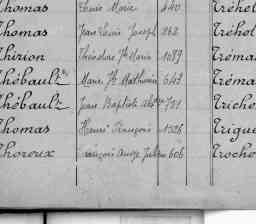 Thomas Louis Marie 440 Tréhel
Thomas Jean Louis Joseph 262 Tréhol
Thirion Théodore Jh Marie 1089 Tréma
Thébault Marie Jh Mathurin 643 Tréma
Thébault Jean Baptiste 701 Triche
Thomas Henri François 1326 Trigue
Thoroux François Ange Julien 606 Troche